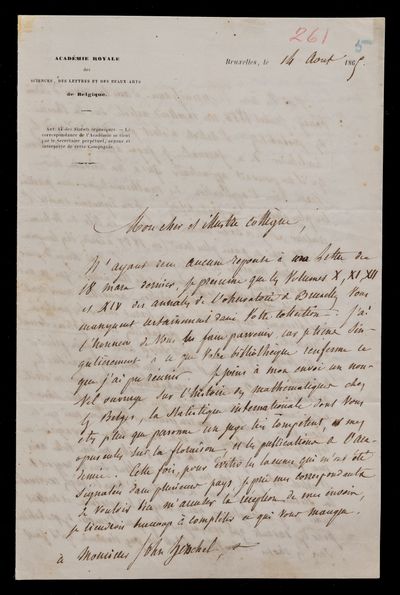 261
5
ACADÉMIE ROYALE
des
SCIENCES, DES LETTRES ET DES BEAUX-ARTS
de Belgique.
Bruxelles, le 14 Aout 1865.
Art. 17 des Statuts organiques. — La
correspondance de l'Académie se tient
par le Secrétaire perpétuel, organe et
interprète de cette Compagnie.
Mon cher et illustre collègue,
N'ayant reçu aucune reponse à ma lettre du
18 mars dernier, je presume que les Volumes X, XI, XII
et XIV des annales de l'observatoire de Bruxelles vous
manquent certainement dans votre collection. J'ai
l'honneur de vous les faire parvenir car je tiens sin-
gulièrement à ce que votre bibliothèque renferme ce
que j'ai pu réunir. Je joins à mon envoi un nou-
vel ouvrage sur l'histoire des mathématiques chez
les Belges, la Statistique internationale dont vous
êtes plus que personne un juge si compétent, et mes
opuscules sur la floraison, et les publications de l'aca-
démie. Cette fois, pour éviter les lacunes qui m'ont été
signalées dans plusieurs pays je prie mes correspondants
de vouloir bien m'accuser la réception de mes envois,
je tiendrais beaucoup à completer ce qui vous manque.
à Monsieur John Herschel,